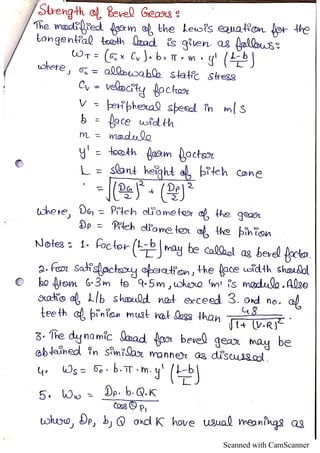 Strength of Bevel Gears :
The modified form of the Lewis equation for the
tangential tooth load is given as follows:
WT = (σo x Cv). b. π. m. y' (L-b/L)
where, σo = allowable static stress
Cv = velocity factor
V = peripheral speed in m/s
b = face width
m = module
y' = tooth form factor
L = slant height of pitch cone
= √((DG/2)² + (DP/2)²)
where, DG = Pitch diameter of the gear
DP = Pitch diameter of the pinion
Notes : 1. Factor (L-b/L) may be called as bevel factor.
2. For satisfactory operation, the face width should
be from 6.3m to 9.5m, where 'm' is module. Also
ratio of L/b should not exceed 3. and no. of
teeth of pinion must not less than 48/√(1+(V.R)²)
3. The dynamic load for bevel gear may be
obtained in similar manner as discussed.
4. Ws = σe. b. π. m. y' (L-b/L)
5. Ww = DP. b. Q. K / Cos Θ P1
where, DP, b, Q and K have usual meanings as
Scanned with CamScanner